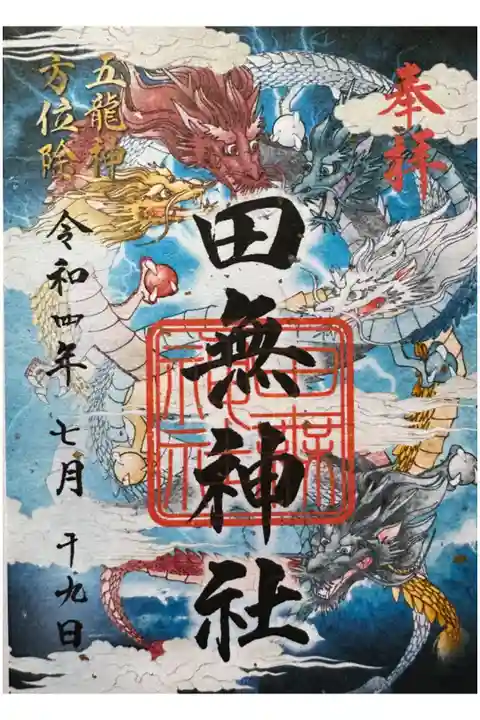 奉拝
田無神社
田無
神社
五龍神
方位除
令和四年 七月 十九日